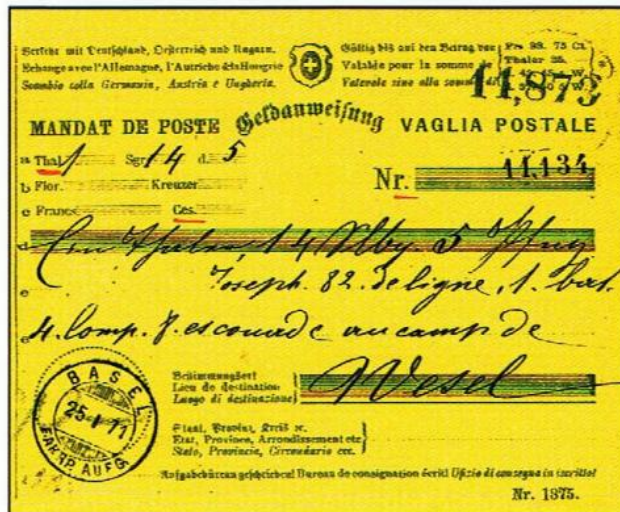 Verkehr mit Deutschland, Oesterreich und Ungarn.
Echange avec l'Allemagne, l'Autriche & la Hongrie
Scambio colla Germania, Austria e Ungheria.
Gültig bis auf den Betrag von
Valable pour la somme de
Valevole sino alla somma di
Frs 93. 75 Ct.
Thaler 25.
11,873
MANDAT DE POSTE Geldanweisung VAGLIA POSTALE
a Thal. 1 Sgr. 14 d. 5
b Flor. Kreuzer
c Francs Ces.
Nr. 11,134
d Ein Thaler, 14 5
e Joseph. 82. de ligne, 1. bat.
e 4. Comp. 8. escouade au camp de
Bestimmungsort
Lieu de destination
Luogo di destinazione
Wesel
BASEL
25 I 71
FAHRP. AUFG.
Staat, Provinz, Kreis ec.
Etat, Province, Arrondissement etc.
Stato, Provincia, Circondario ecc.
Aufgabebüreau geschrieben! Bureau de consignation écrit! Ufizio di consegna in iscritto!
Nr. 1375.